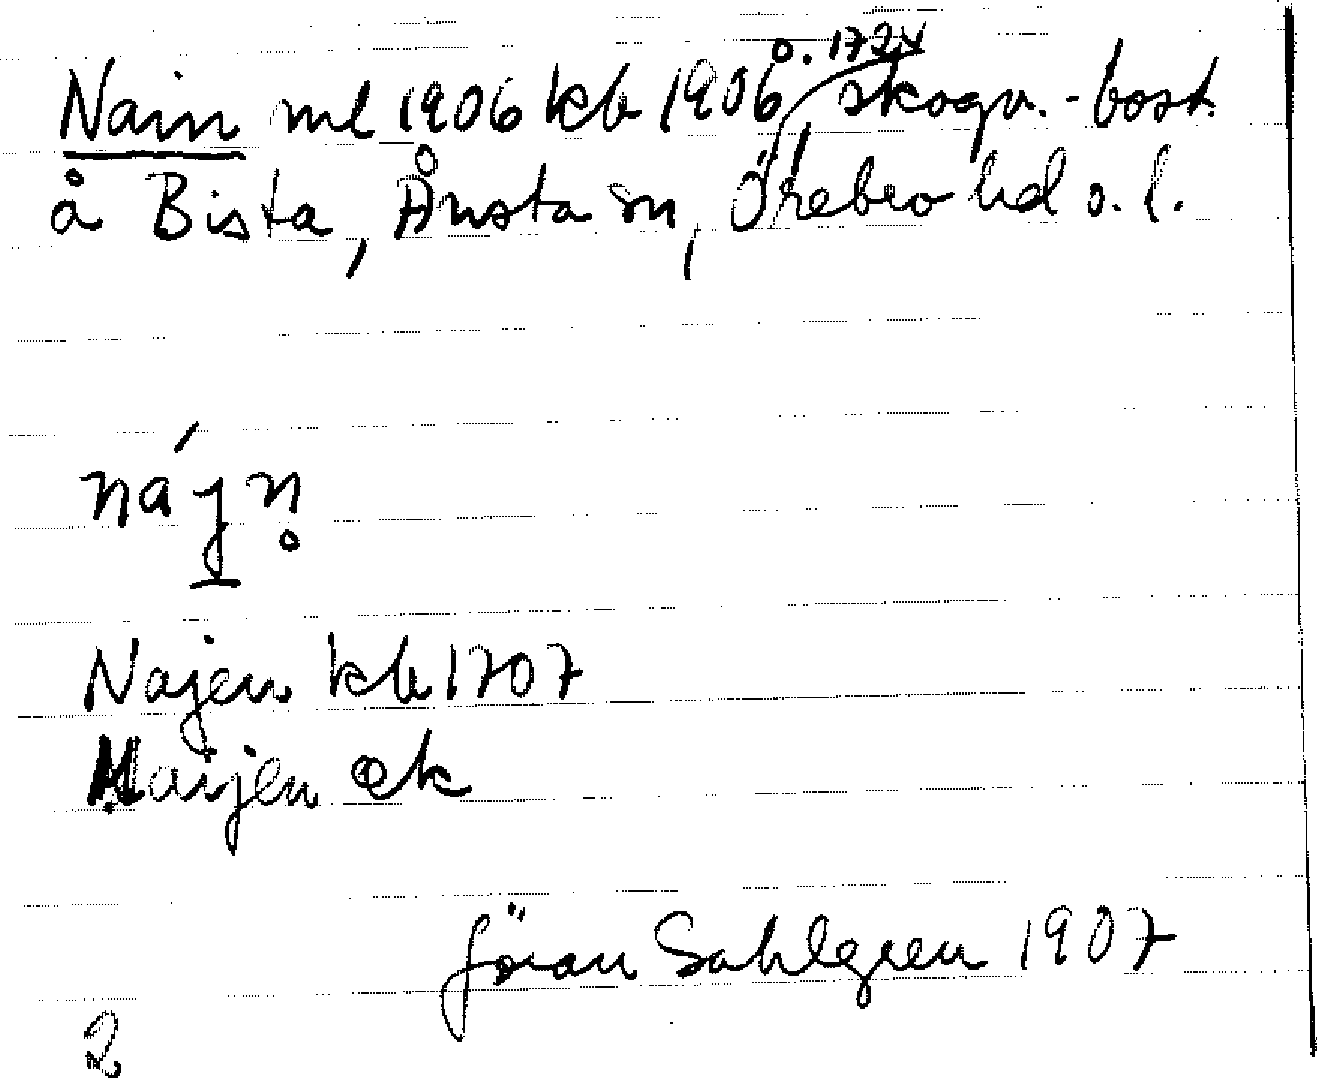 Nain ml 1906 kb 1906 o. 1724 skogv.-bost.
å Bista, Ånsta sn, Örebro hd o. l.
nájn̥
Najen kb 1707
Naijen ek
Jöran Sahlgren 1907
2